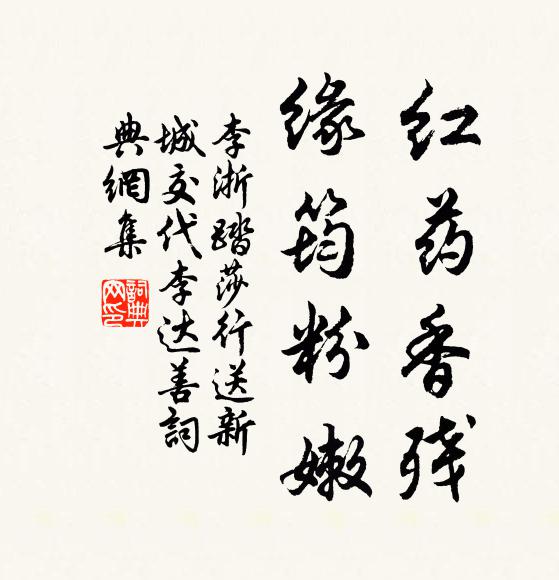 红药香残
缘筠粉嫩
李浙踏莎行送新
城交代李达善詞
典網集
詞典网印